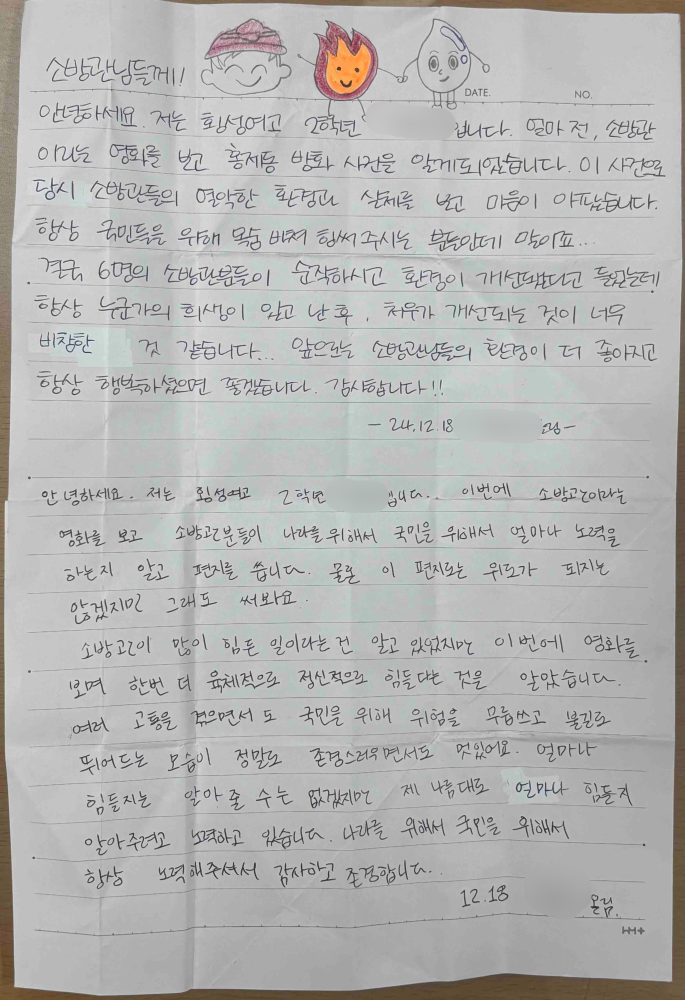 소방관님들께!
DATE. NO.
안녕하세요. 저는 횡성여고 2학년 입니다. 얼마 전, 소방관
이라는 영화를 보고 홍제동 방화 사건을 알게되었습니다. 이 사건으로
당시 소방관들의 열악한 환경과 실제를 보고 마음이 아팠습니다.
항상 국민들을 위해 목숨 바쳐 힘써주시는 분들인데 말이죠...
결국 6명의 소방관분들이 순직하시고 환경이 개선됐다고 들었는데
항상 누군가의 희생이 있고 난 후, 처우가 개선되는 것이 너무
비참한 것 같습니다... 앞으로는 소방관님들의 환경이 더 좋아지고
항상 행복하셨으면 좋겠습니다. 감사합니다!!
- 24.12.18
안녕하세요. 저는 횡성여고 2학년 입니다.. 이번에 소방관이라는
영화를 보고 소방관분들이 나라를 위해서 국민을 위해서 얼마나 노력을
하는지 알고 편지를 씁니다. 물론 이 편지로는 위로가 되지는
않겠지만 그래도 써봐요.
소방관이 많이 힘든 일이라는건 알고 있었지만 이번에 영화를
보며 한번 더 육체적으로 정신적으로 힘들다는 것을 알았습니다.
여러 고통을 겪으면서도 국민을 위해 위험을 무릅쓰고 불길로
뛰어드는 모습이 정말로 존경스러우면서도 멋있어요. 얼마나
힘들지는 알아 줄 수는 없겠지만 제 나름대로 얼마나 힘들지
알아주려고 노력하고 있습니다. 나라를 위해서 국민을 위해서
항상 노력해주셔서 감사하고 존경합니다..
12.18 올림.